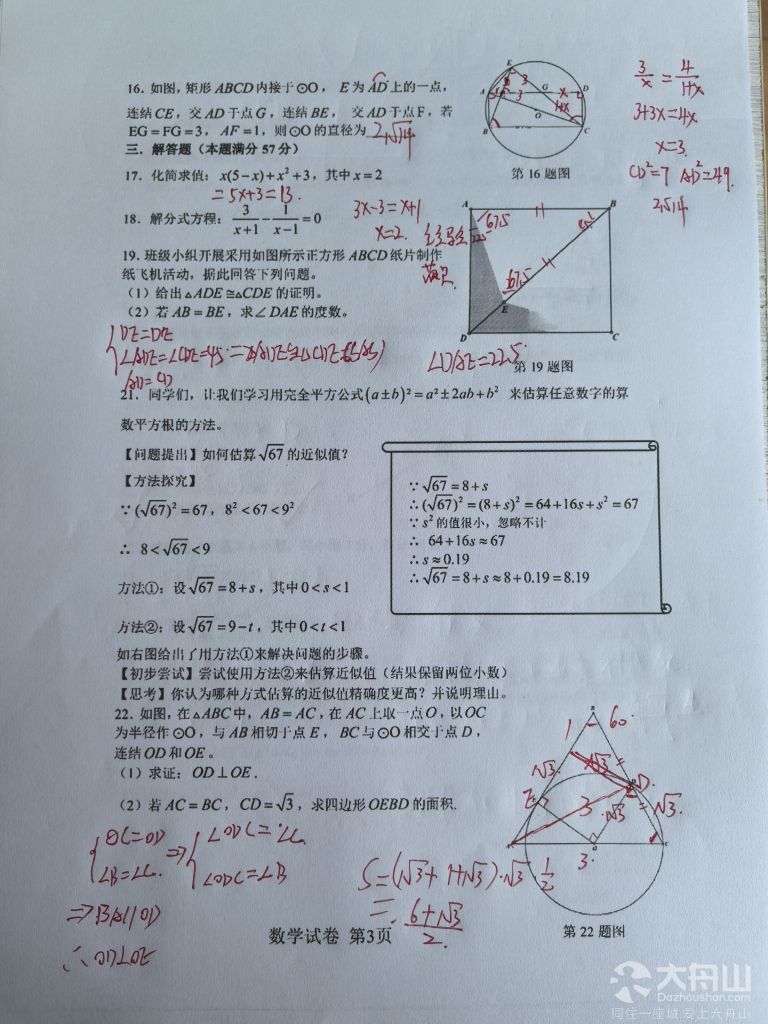 16. 如图，矩形 ABCD内接于⊙O， E 为 AD 上的一点，
连结CE，交 AD 于点G，连结 BE， 交 AD 于点F，若
EG=FG=3， AF=1，则⊙O 的直径为 2√14
三. 解答题（本题满分 57 分）
17. 化简求值：x(5−x)+x²+3，其中 x=2
=5x+3=13.
18. 解分式方程：3/(x+1) − 1/(x−1) =0
3x-3=x+1
x=2.
第 16 题图
3/x = 4/(1+x)
3+3x=4x
x=3.
CD²=7 AD²=49.
2√14
19. 班级小组开展采用如图所示正方形 ABCD 纸片制作
纸飞机活动，据此回答下列问题。
（1）给出△ADE≌△CDE 的证明。
（2）若 AB=BE，求∠DAE 的度数。
DE=DE
∠ADE=∠CDE=45
AD=CD
A B D C E
67.5
22.5
67.5
∠DAE=22.5
第 19 题图
21. 同学们，让我们学习用完全平方公式(a±b)²=a²±2ab+b² 来估算任意数字的算
数平方根的方法。
【问题提出】如何估算√67 的近似值？
【方法探究】
∵(√67)²=67，8²<67<9²
∴ 8<√67<9
方法①：设√67=8+s，其中0<s<1
方法②：设√67=9−t，其中0<t<1
∵√67=8+s
∴(√67)²=(8+s)²=64+16s+s²=67
∵s²的值很小，忽略不计
∴ 64+16s≈67
∴s≈0.19
∴√67=8+s≈8+0.19=8.19
如右图给出了用方法①来解决问题的步骤。
【初步尝试】尝试使用方法②来估算近似值（结果保留两位小数）
【思考】你认为哪种方式估算的近似值精确度更高？并说明理由。
22. 如图，在△ABC 中，AB=AC，在 AC 上取一点O，以 OC
为半径作⊙O，与 AB 相切于点 E， BC 与⊙O 相交于点 D，
连结 OD 和 OE。
（1）求证：OD⊥OE.
（2）若 AC=BC，CD=√3，求四边形 OEBD 的面积.
OC=OD
∠B=∠C
⇒
∠ODC=∠C
∠ODC=∠B
⇒BA//OD
∴OD⊥OE
S=(√3+1+√3)·√3·1/2
=(6+√3)/2.
60°
第 22 题图
数学试卷 第3页
大舟山
Dazhoushan.com
同住一座城,爱上大舟山